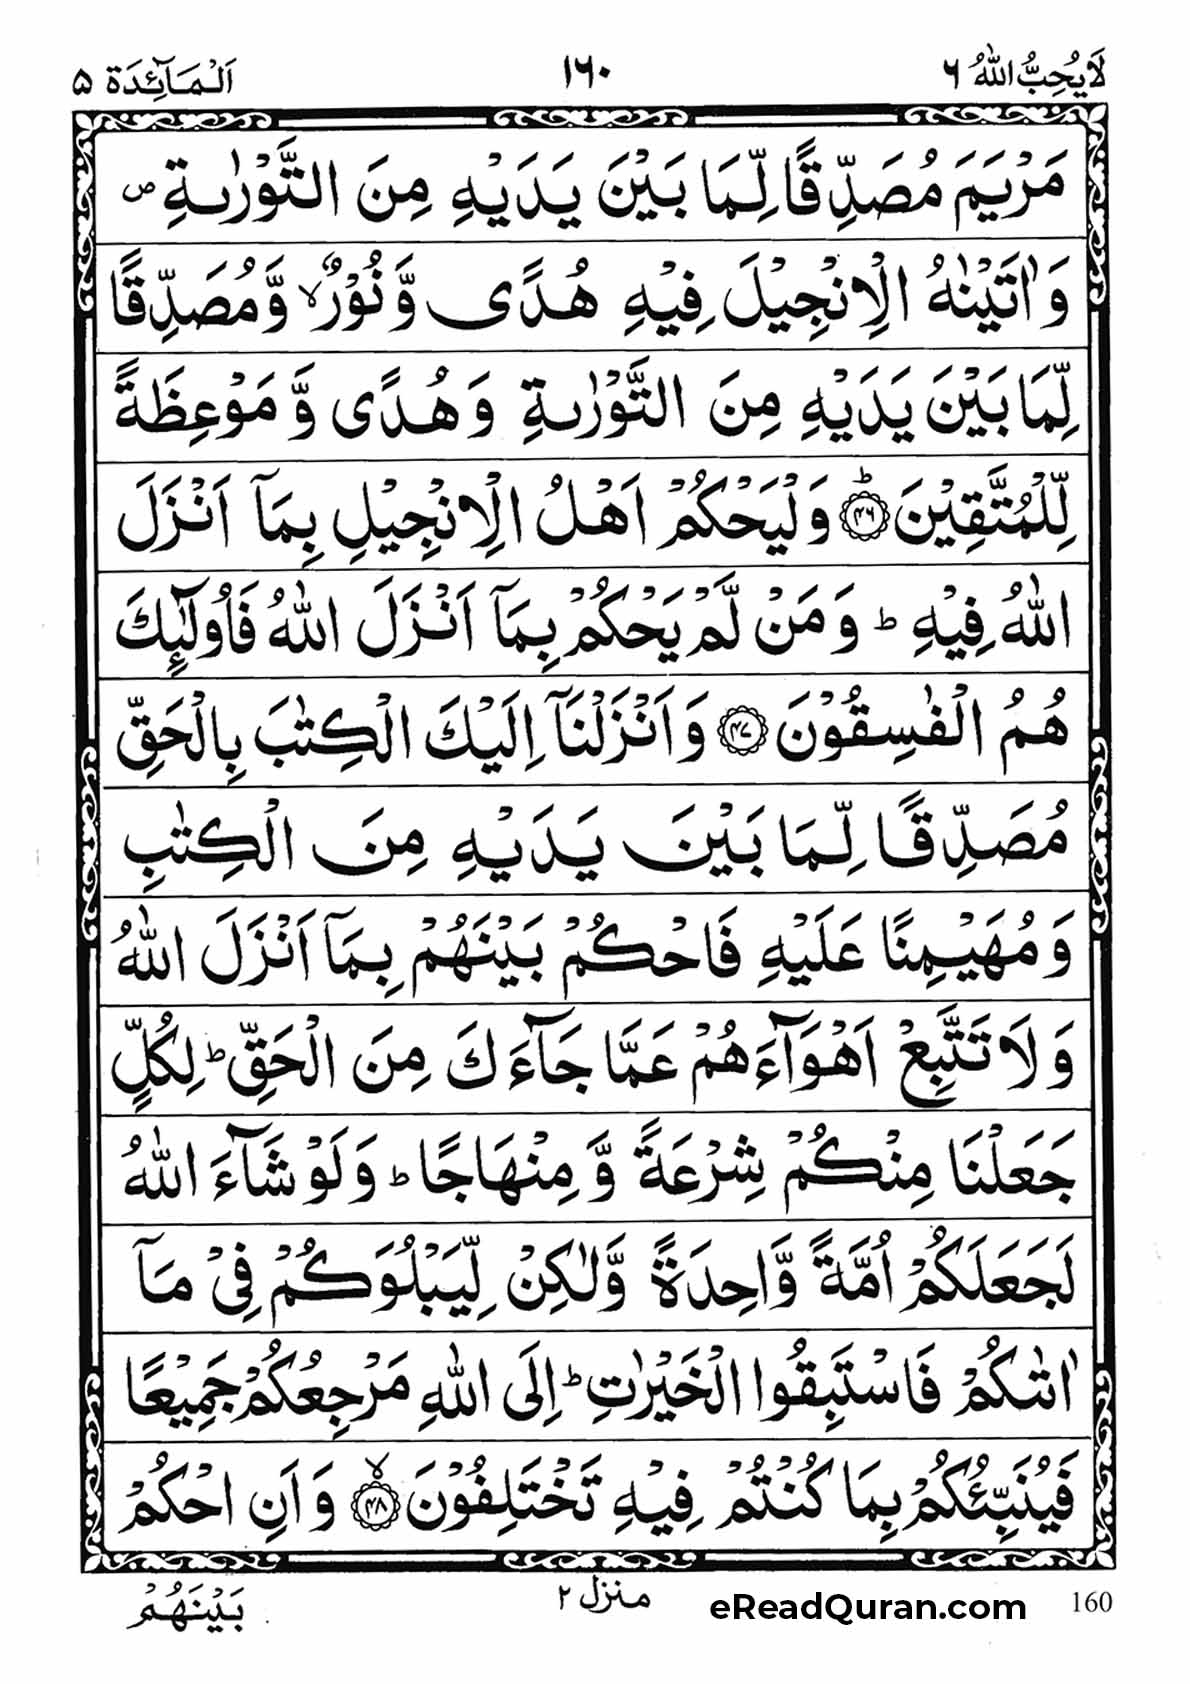 لَا يُحِبُّ اللّٰهُ ٦
١٦٠
اَلْمَآئِدَة ٥
مَرْيَمَ مُصَدِّقًا لِّمَا بَيْنَ يَدَيْهِ مِنَ التَّوْرٰىةِ ۪
وَاٰتَيْنٰهُ الْاِنْجِيْلَ فِيْهِ هُدًى وَّنُوْرٌ ۙ وَّمُصَدِّقًا
لِّمَا بَيْنَ يَدَيْهِ مِنَ التَّوْرٰىةِ وَهُدًى وَّمَوْعِظَةً
لِّلْمُتَّقِيْنَ ؕ ﴿٤٦﴾ وَلْيَحْكُمْ اَهْلُ الْاِنْجِيْلِ بِمَآ اَنْزَلَ
اللّٰهُ فِيْهِ ؕ وَمَنْ لَّمْ يَحْكُمْ بِمَآ اَنْزَلَ اللّٰهُ فَاُولٰٓئِكَ
هُمُ الْفٰسِقُوْنَ ﴿٤٧﴾ وَاَنْزَلْنَآ اِلَيْكَ الْكِتٰبَ بِالْحَقِّ
مُصَدِّقًا لِّمَا بَيْنَ يَدَيْهِ مِنَ الْكِتٰبِ
وَمُهَيْمِنًا عَلَيْهِ فَاحْكُمْ بَيْنَهُمْ بِمَآ اَنْزَلَ اللّٰهُ
وَلَا تَتَّبِعْ اَهْوَآءَهُمْ عَمَّا جَآءَكَ مِنَ الْحَقِّ ؕ لِكُلٍّ
جَعَلْنَا مِنْكُمْ شِرْعَةً وَّمِنْهَاجًا ؕ وَلَوْ شَآءَ اللّٰهُ
لَجَعَلَكُمْ اُمَّةً وَّاحِدَةً وَّلٰكِنْ لِّيَبْلُوَكُمْ فِيْ مَآ
اٰتٰىكُمْ فَاسْتَبِقُوا الْخَيْرٰتِ ؕ اِلَى اللّٰهِ مَرْجِعُكُمْ جَمِيْعًا
فَيُنَبِّئُكُمْ بِمَا كُنْتُمْ فِيْهِ تَخْتَلِفُوْنَ ۙ ﴿٤٨﴾ وَاَنِ احْكُمْ
بَيْنَهُمْ
منزل ٢
eReadQuran.com
160